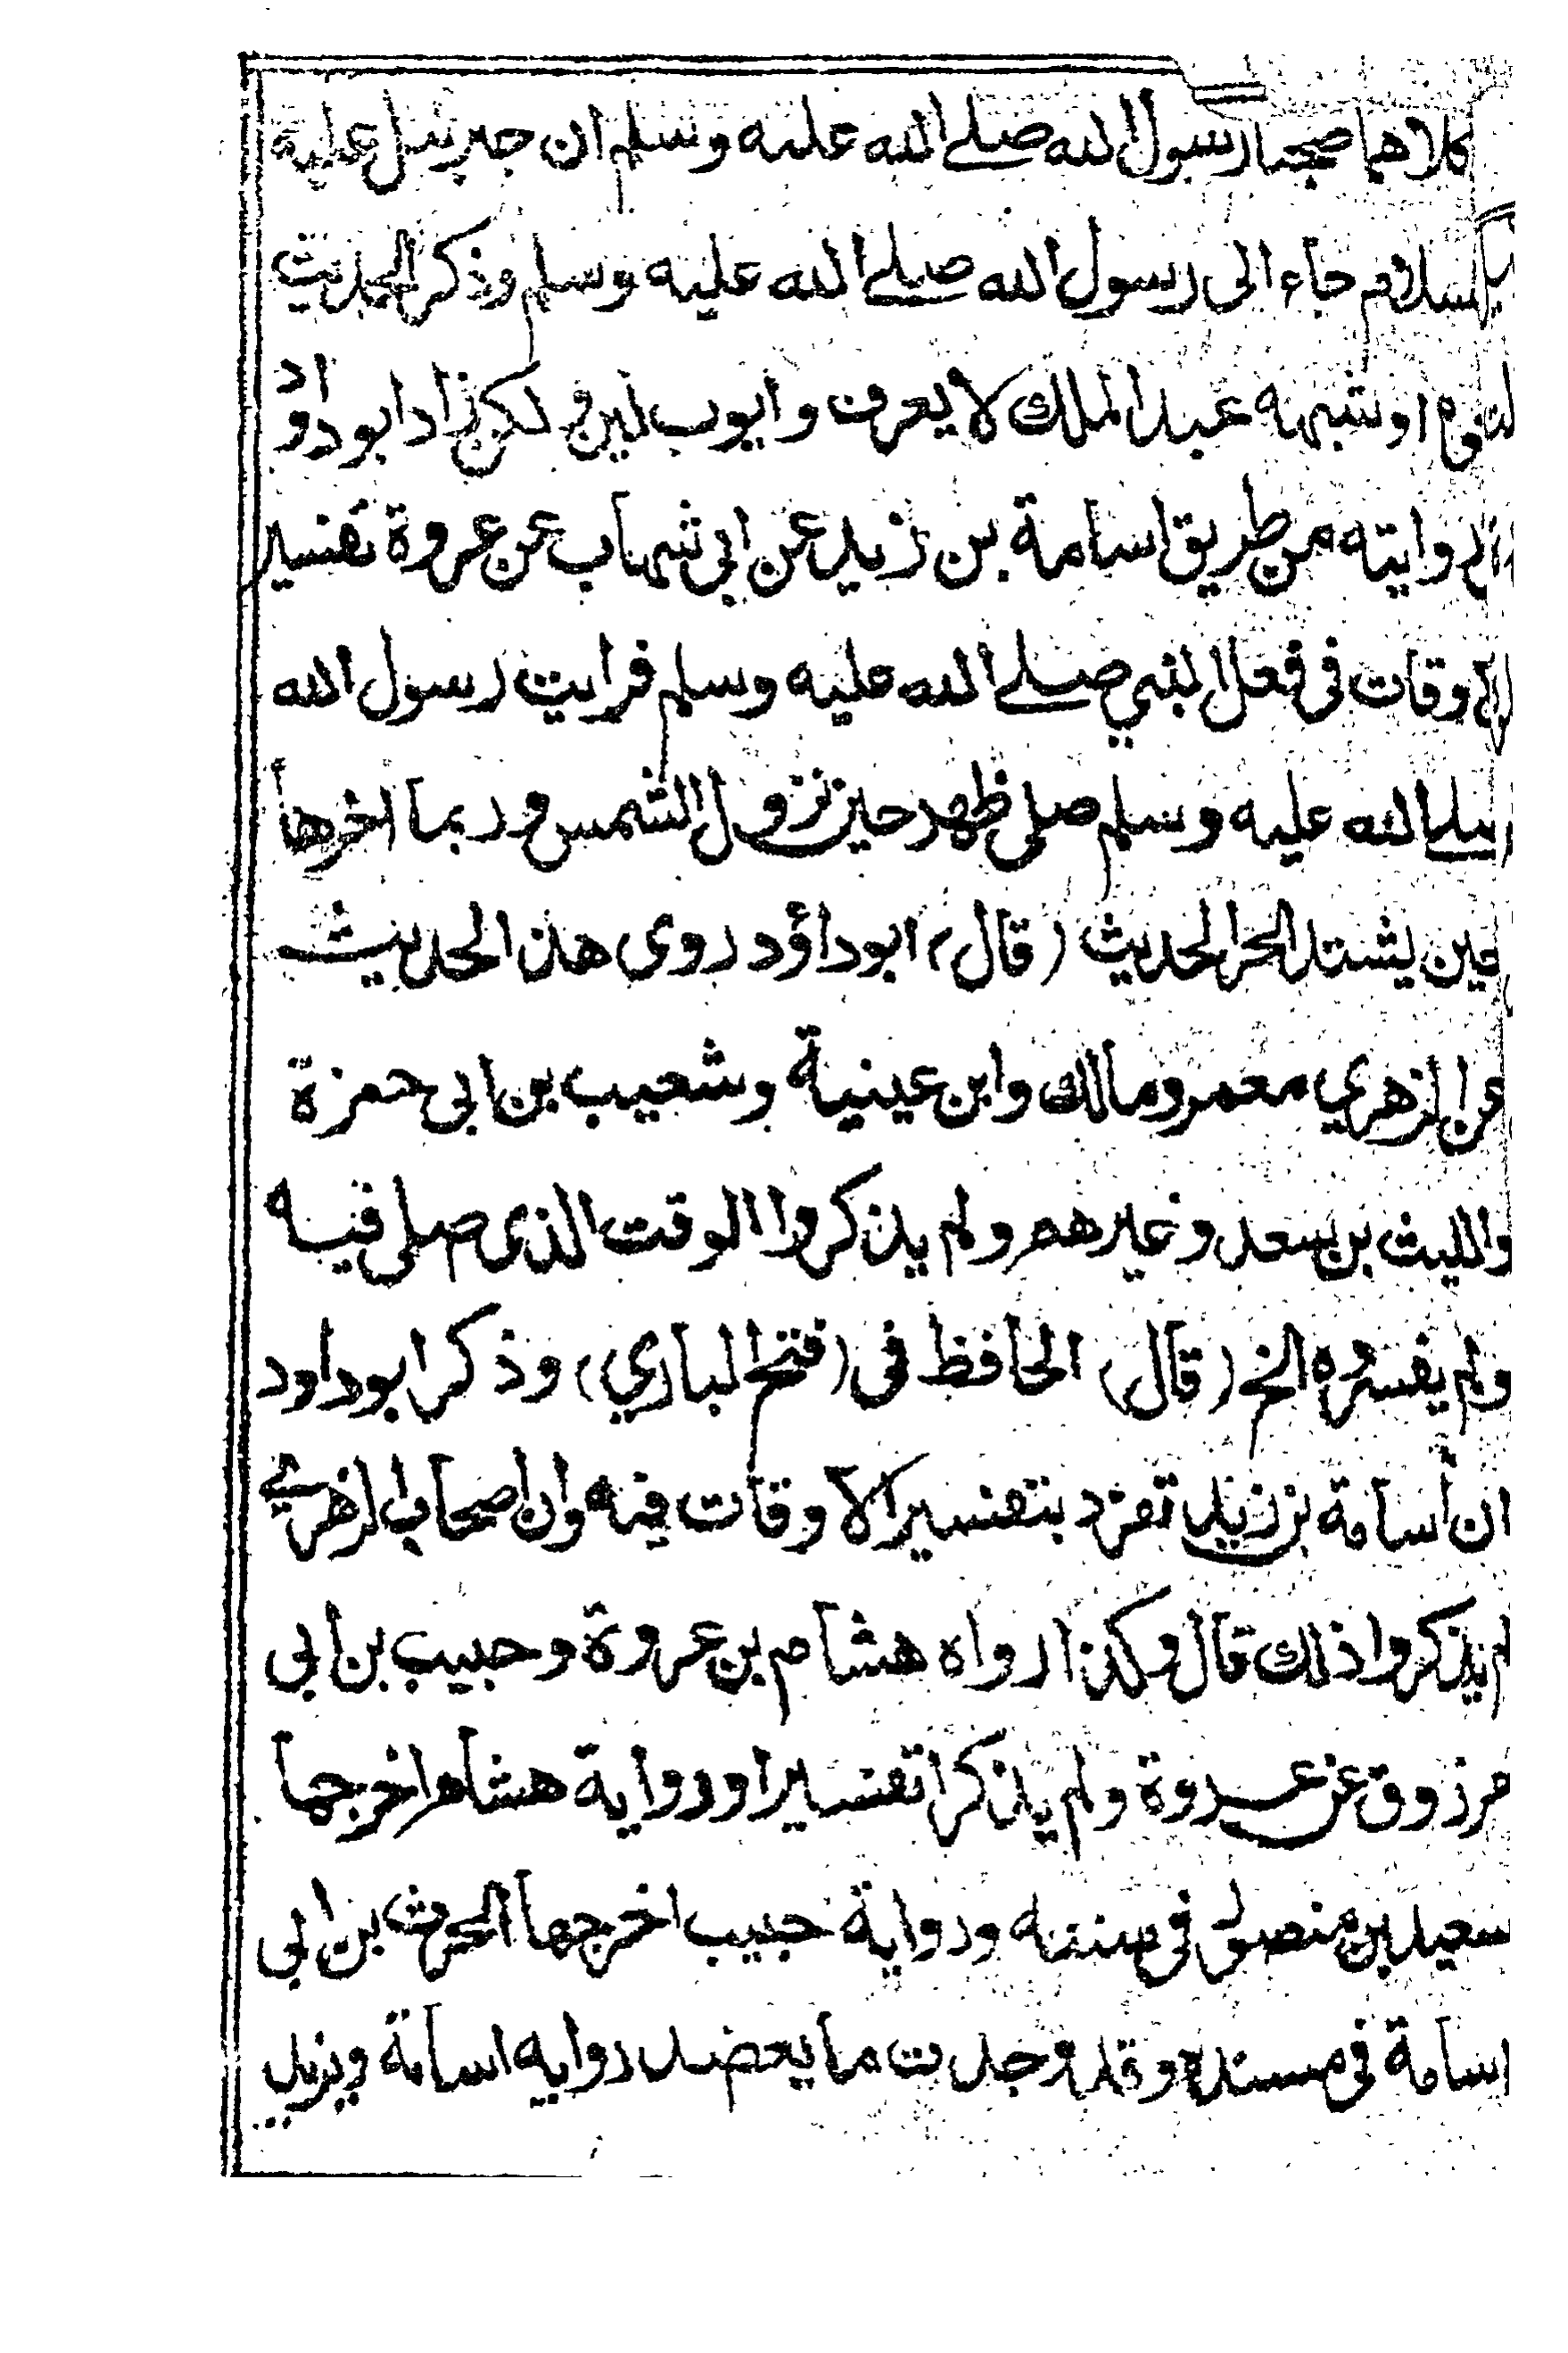 كلاهما صحبا رسول الله صلے الله عليه وسلم ان جبرئيل عليه
السلام جاء الى رسول الله صلے الله عليه وسلم وذكر الحديث
اوشبهه عبد الملك لا يعرف وايوب لين ولكن زاد ابو داؤد
روايته من طريق اسامة بن زيد عن ابي شهاب عن عروة تفسير
الاوقات في فعل النبي صلے الله عليه وسلم فرايت رسول الله
صلے الله عليه وسلم صلى ظهر حين تزول الشمس وربما اخرها
حين يشتد الحر الحديث (قال) ابو داؤد روى هذا الحديث
عن الزهري معمر ومالك وابن عينية وشعيب بن ابى حمزة
والليث بن سعد وغيرهم ولم يذكروا الوقت الذى صلى فيه
ولم يفسروه الخ (قال) الحافظ فى (فتح الباري) وذكر ابو داود
ان اسامة بن زيد تفرد بتفسير الاوقات فيه وان اصحاب الزهرے
لم يذكروا ذلك قال وكذا رواه هشام بن عروة وحبيب بن ابى
مرزوق عن عروة ولم يذكرا تفسيرا ورواية هشام اخرجها
سعيد بن منصور في سننه ورواية حبيب اخرجها الحرث بن ابي
اسامة فى مسنده وقد وجدت ما يعضد روايه اسامة ويزيد